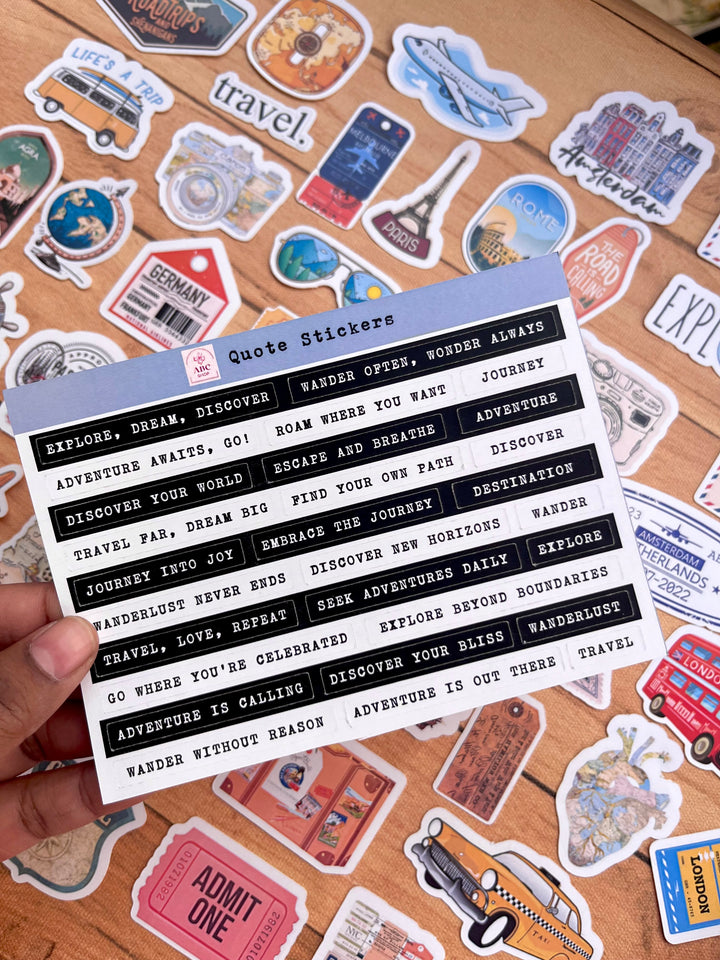 ROADTRIPS
AND
SHENANIGANS
LIFE'S A TRIP
travel.
MELBOURNE
Amsterdam
AGRA
Canon
PARIS
ROME
THE
ROAD
IS
CALLING
GERMANY
GERMANY
FRANKFURT
NATIONAL AIRLINES
EXPL
Quote Stickers
ABC
SHOP
EXPLORE, DREAM, DISCOVER
WANDER OFTEN, WONDER ALWAYS
ADVENTURE AWAITS, GO!
ROAM WHERE YOU WANT
JOURNEY
DISCOVER YOUR WORLD
ESCAPE AND BREATHE
ADVENTURE
TRAVEL FAR, DREAM BIG
FIND YOUR OWN PATH
DISCOVER
JOURNEY INTO JOY
EMBRACE THE JOURNEY
DESTINATION
WANDERLUST NEVER ENDS
DISCOVER NEW HORIZONS
WANDER
TRAVEL, LOVE, REPEAT
SEEK ADVENTURES DAILY
EXPLORE
GO WHERE YOU'RE CELEBRATED
EXPLORE BEYOND BOUNDARIES
ADVENTURE IS CALLING
DISCOVER YOUR BLISS
WANDERLUST
WANDER WITHOUT REASON
ADVENTURE IS OUT THERE
TRAVEL
AMSTERDAM
THERLANDS
07-2022
LONDON
ADMIT
ONE
01071982
01071982
TAXI
NYC
LONDON